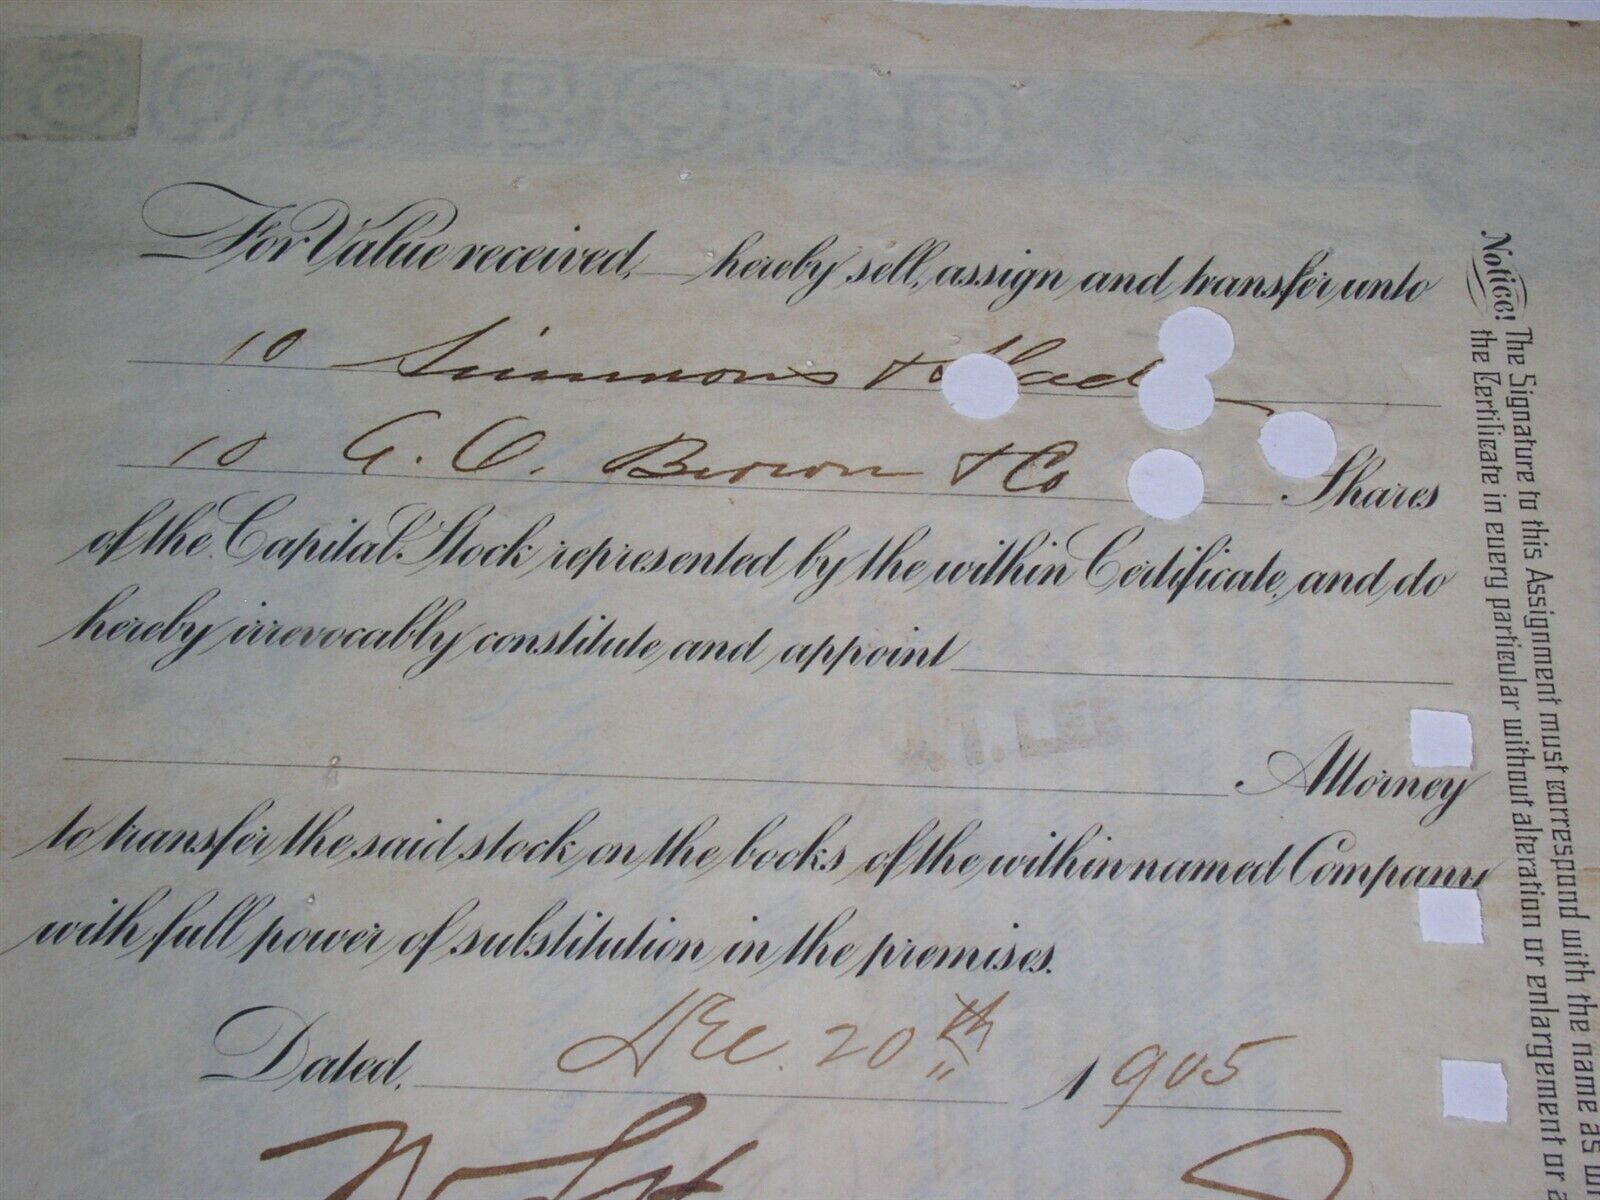 For Value received, hereby sell, assign and transfer unto
10 Simmons &
10 G. O. Brown & Co Shares
of the Capital Stock represented by the within Certificate, and do
hereby irrevocably constitute and appoint
Attorney
to transfer the said stock on the books of the within named Company
with full power of substitution in the premises.
Dated, Dec. 20th 1905
Notice! The Signature to this Assignment must correspond with the name as
the Certificate in every particular without alteration or enlargement or